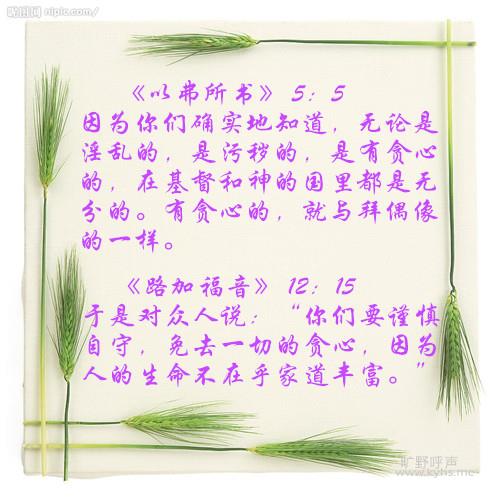 昵图网 nipic.com/
《以弗所书》 5：5
因为你们确实地知道，无论是
淫乱的，是污秽的，是有贪心
的，在基督和神的国里都是无
分的。有贪心的，就与拜偶像
的一样。
《路加福音》 12：15
于是对众人说：“你们要谨慎
自守，免去一切的贪心，因为
人的生命不在乎家道丰富。”
旷野呼声
www.kyhs.me